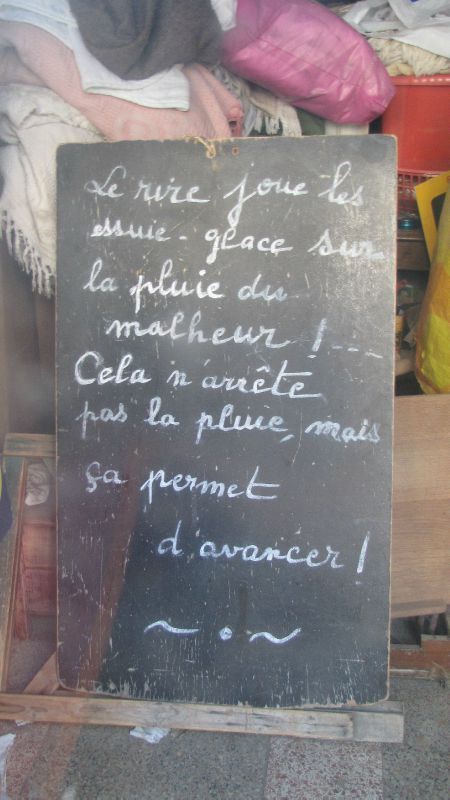 Le rire joue les
essuie-glace sur
la pluie du
malheur !...
Cela n'arrête
pas la pluie, mais
ça permet
d'avancer !
~ . ~